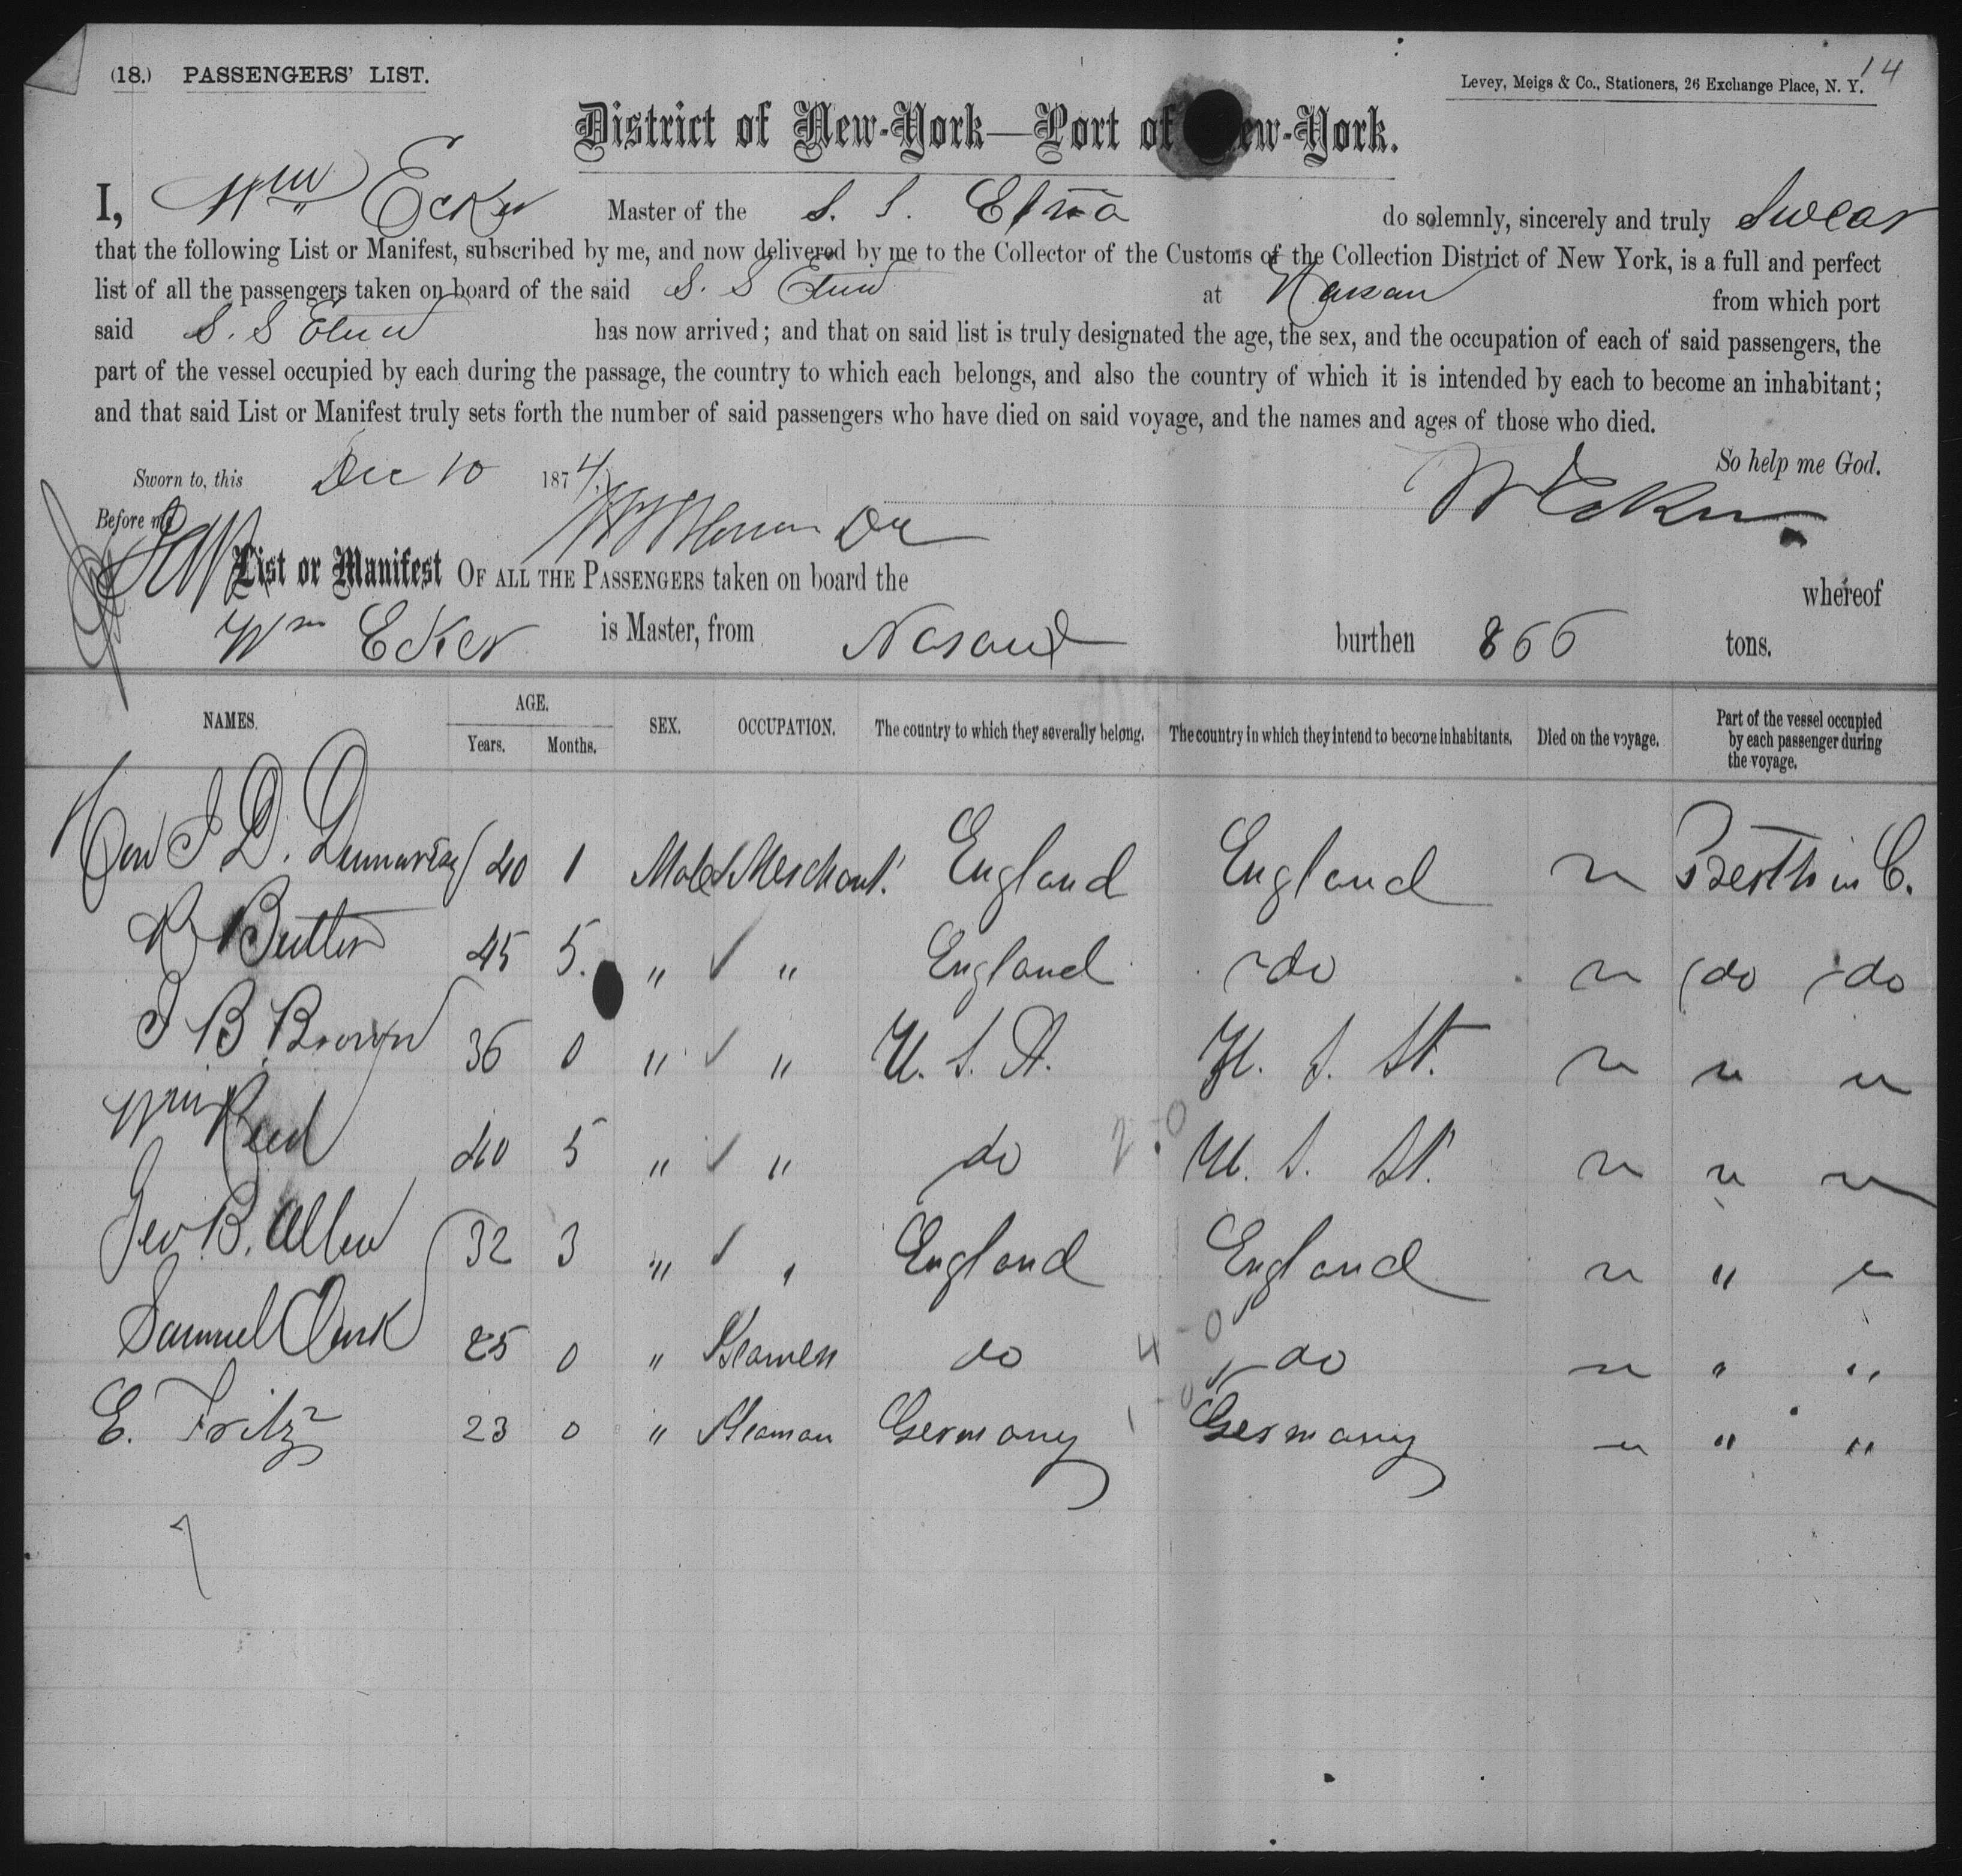 14
(18.) PASSENGERS' LIST.
Levey, Meigs & Co., Stationers, 26 Exchange Place, N. Y.
District of New-York—Port of ew-York.
I, Wm Ecker Master of the S. S. Etna do solemnly, sincerely and truly Swear
that the following List or Manifest, subscribed by me, and now delivered by me to the Collector of the Customs of the Collection District of New York, is a full and perfect
list of all the passengers taken on board of the said S. S Etna at Nassau from which port
said S. S Etna has now arrived; and that on said list is truly designated the age, the sex, and the occupation of each of said passengers, the
part of the vessel occupied by each during the passage, the country to which each belongs, and also the country of which it is intended by each to become an inhabitant;
and that said List or Manifest truly sets forth the number of said passengers who have died on said voyage, and the names and ages of those who died.
So help me God.
Sworn to, this Dec 10 1874. W Ecker
Before me
List or Manifest OF ALL THE PASSENGERS taken on board the whereof
Wm Ecker is Master, from Nasau burthen 866 tons.
NAMES. AGE. Years. Months. SEX. OCCUPATION. The country to which they severally belong. The country in which they intend to become inhabitants. Died on the voyage. Part of the vessel occupied by each passenger during the voyage.
Hon J D. 40 1 Male Merchant. England England " Berth in C.
R Butler 45 5. " " England do " do do
J B Brown 36 0 " " U. S. A. U. S. A. " " "
Wm Reed 40 5 " " do U. S. A. " " "
2-0
Geo B. Allen 32 3 " " England England " " "
Samuel Clark 25 0 " Seamen do do " " "
4-0
E. Fritz 23 0 " Seaman Germany Germany " " "
1-0
7